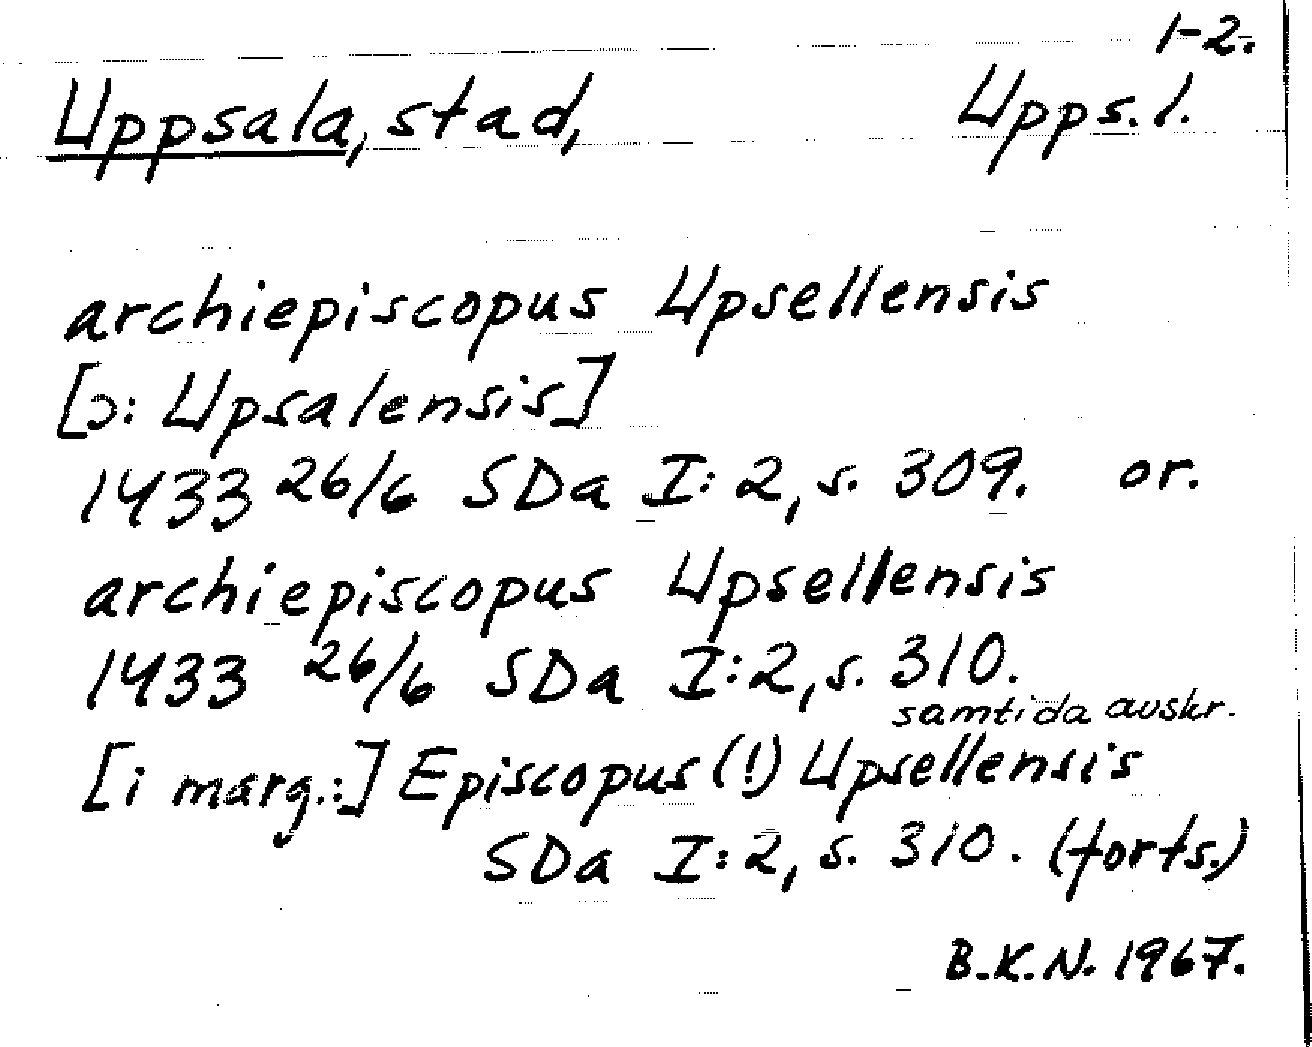 1-2.
Uppsala, stad, Upps.l.
archiepiscopus Upsellensis
[ɔ: Upsalensis]
1433 26/6 SDa I:2, s. 309. or.
archiepiscopus Upsellensis
1433 26/6 SDa I:2, s. 310.
samtida avskr.
[i marg.:] Episcopus (!) Upsellensis
SDa I:2, s. 310. (forts.)
B.K.N. 1967.